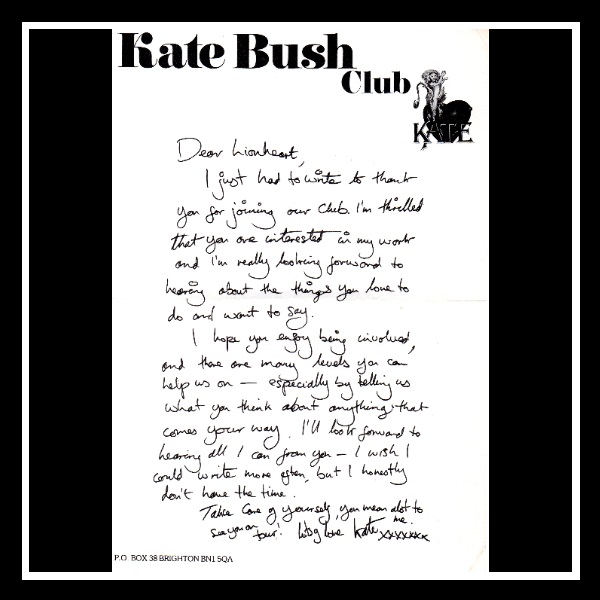 Kate Bush
Club
KATE
Dear Lionheart,
I just had to write to thank
you for joining our Club. I'm thrilled
that you are interested in my work
and I'm really looking forward to
hearing about the things you love to
do and want to say.
I hope you enjoy being involved,
and there are many levels you can
help us on — especially by telling us
what you think about anything that
comes your way. I'll look forward to
hearing all I can from you — I wish I
could write more often, but I honestly
don't have the time.
Take Care of yourself, you mean alot to me.
See you on tour! lots of love Kate xxxxxxx
P.O. BOX 38 BRIGHTON BN1 5QA